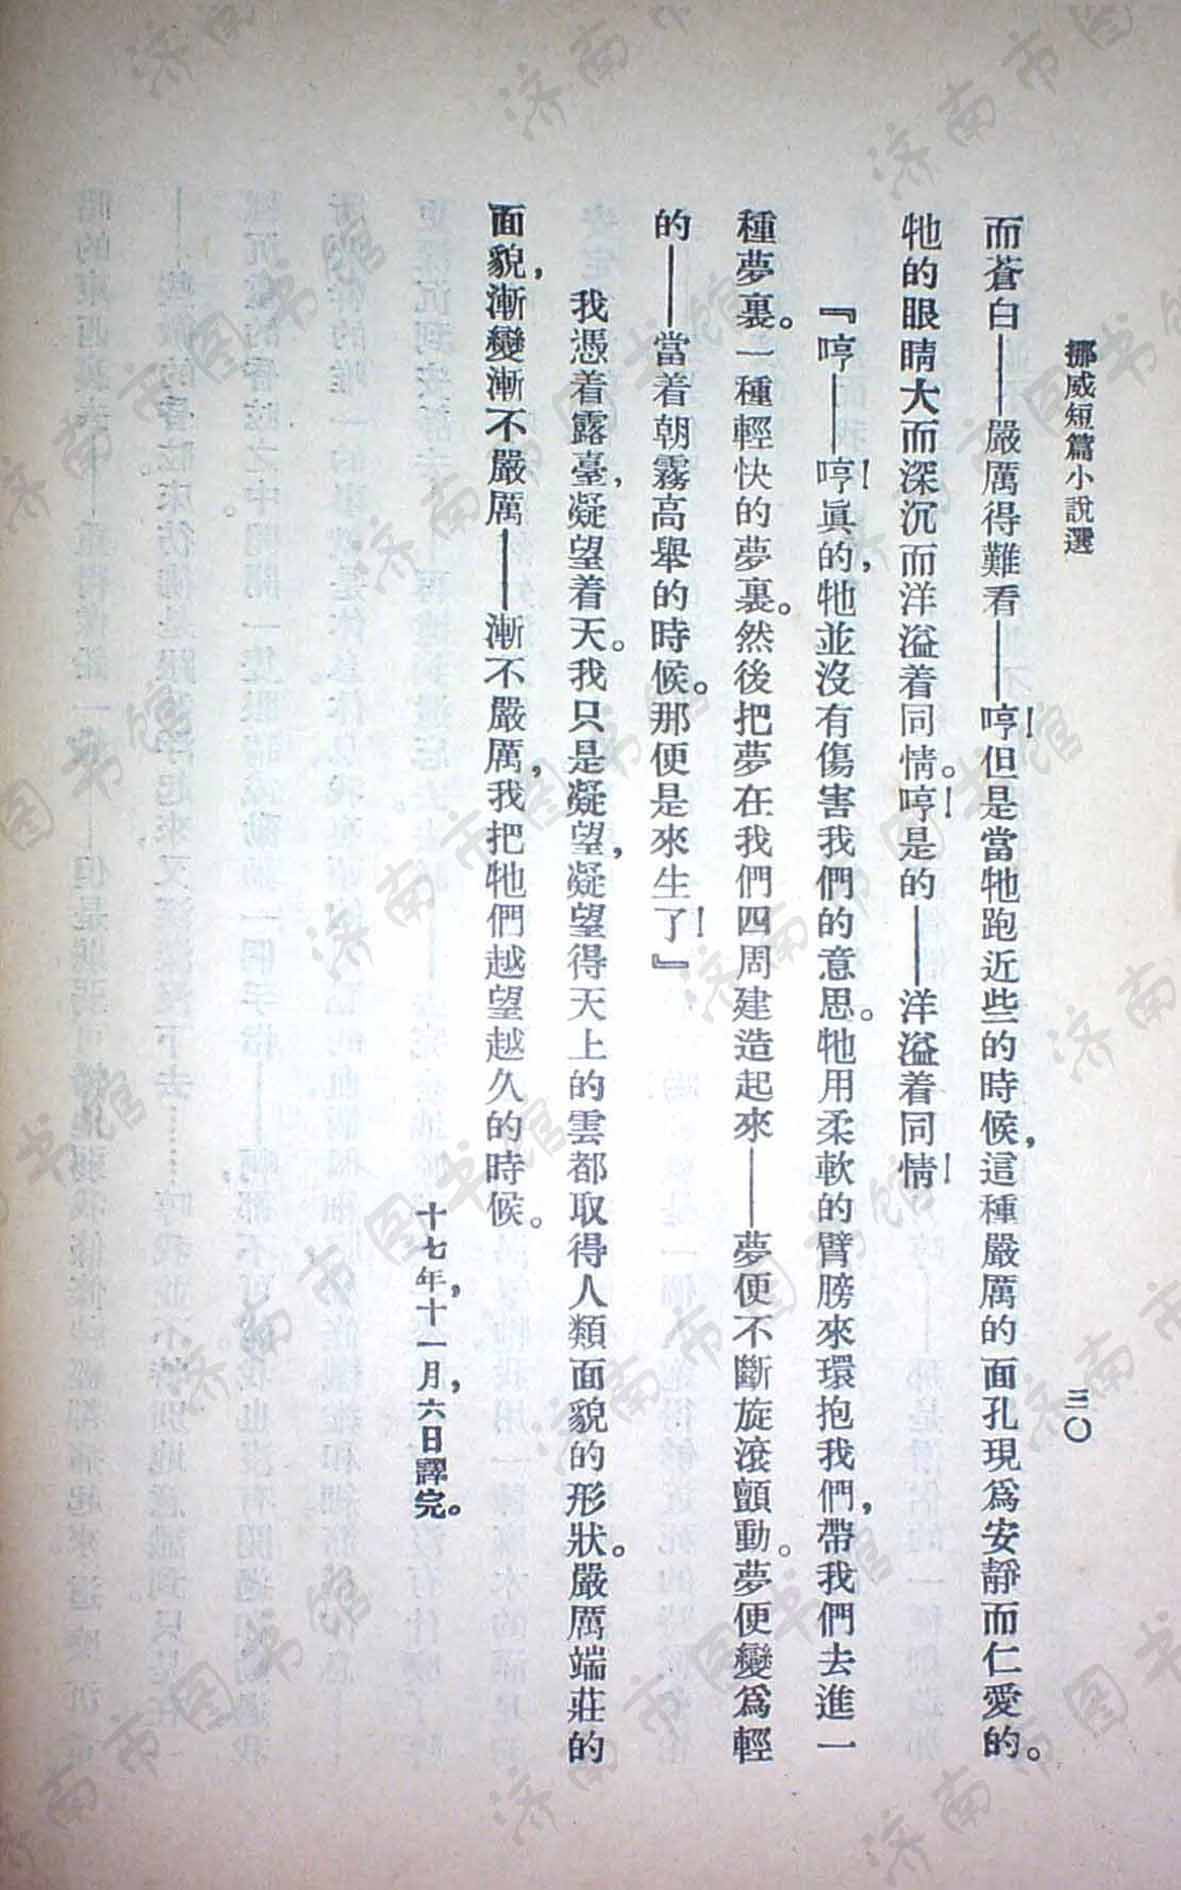 挪威短篇小說選
三〇
而蒼白——嚴厲得難看——哼！但是當牠跑近些的時候，這種嚴厲的面孔現爲安靜而仁愛的。
牠的眼睛大而深沉而洋溢着同情。哼！是的——洋溢着同情！
『哼——哼！眞的，牠並沒有傷害我們的意思。牠用柔軟的臂膀來環抱我們，帶我們去進一
種夢裏。一種輕快的夢裏。然後把夢在我們四周建造起來——夢便不斷旋滾顫動。夢便變爲輕
的——當着朝霧高舉的時候。那便是來生了！』
我憑着露臺，凝望着天。我只是凝望，凝望得天上的雲都取得人類面貌的形狀。嚴厲端莊的
面貌，漸變漸不嚴厲——漸不嚴厲，我把牠們越望越久的時候。
十七年，十一月，六日譯完。
济南市图书馆